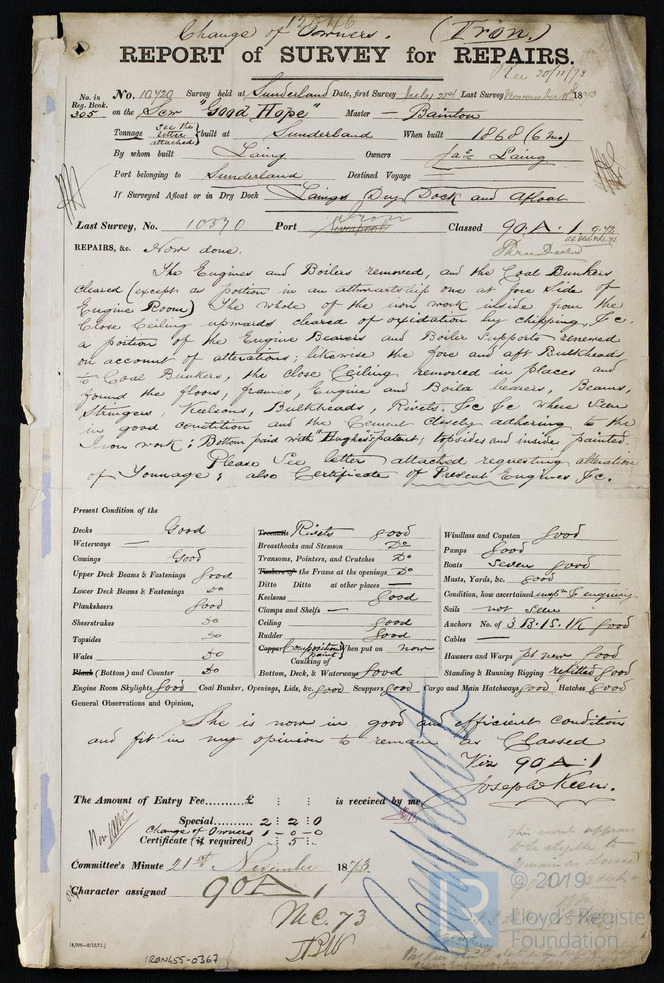 Change of Owners. (Iron.)
REPORT of SURVEY for REPAIRS.
Rec 20/11/73
No. in Reg. Book. 305
No. 10720 Survey held at Sunderland Date, first Survey July 2nd Last Survey 1873
on the Scr "Good Hope" Master — Bainton
Tonnage see the letter attached built at Sunderland When built 1868 (6 mo)
By whom built Laing Owners Jas Laing
Port belonging to Sunderland Destined Voyage
If Surveyed Afloat or in Dry Dock Laings Dry Dock and Afloat
Last Survey, No. 10370 Port Classed 90 A. 1. 9.72
Three Decks
REPAIRS, &c. Now done.
The Engines and Boilers removed, and the Coal Bunkers
cleared (except a portion in an athwartship one at fore side of
Engine Room) The whole of the iron work inside from the
Close Ceiling upwards cleared of oxidation by chipping &c.
a portion of the Engine Bearers and Boiler Supports renewed
on account of alterations; likewise the fore and aft Bulkheads
to Coal Bunkers, the close Ceiling removed in places and
found the floors, frames, Engine and Boiler bearers, Beams,
Stringers, Keelsons, Bulkheads, Rivets &c &c where seen
in good condition and the Cement closely adhering to the
Iron work; Bottom paid with "Hughes" patent; topsides and inside painted.
Please see letter attached requesting alteration
of Tonnage; also Certificate of Present Engines &c.
Present Condition of the
Decks Good
Waterways —
Comings Good
Upper Deck Beams & Fastenings Good
Lower Deck Beams & Fastenings Do
Planksheers Good
Sheerstrakes Do
Topsides Do
Wales Do
Plank (Bottom) and Counter Do
Treenails Rivets good
Breasthooks and Stemson Do
Transoms, Pointers, and Crutches Do
Timbers of the Frame at the openings Do
Ditto Ditto at other places —
Keelsons Good
Clamps and Shelfs —
Ceiling Good
Rudder Good
Copper Composition paint When put on now
Caulking of
Bottom, Deck, & Waterways Good
Windlass and Capstan Good
Pumps Good
Boats Seven good
Masts, Yards, &c. Good
Condition, how ascertained inspn & enquiry
Sails not seen
Anchors No. of 3 B. 1 S. 1 K Good
Cables —
Hawsers and Warps pt new Good
Standing & Running Rigging refitted Good
Engine Room Skylights Good Coal Bunker, Openings, Lids, &c. Good Scuppers Good Cargo and Main Hatchways Good Hatches Good
General Observations and Opinion,
She is now in good and efficient condition
and fit in my opinion to remain as Classed
Viz 90 A. 1
Joseph Keen.
The Amount of Entry Fee.......... £ : : is received by me,
Special.......... 2 : 2 : 0
Change of Owners 1 - 0 - 0
Certificate (if required) : 5 :
Committee's Minute 21st November 1873.
Character assigned 90 A 1
M.C. 73
[4,000—9/12/72.]
IRON455-0367
LR
© 2019
Lloyd's Register
Foundation